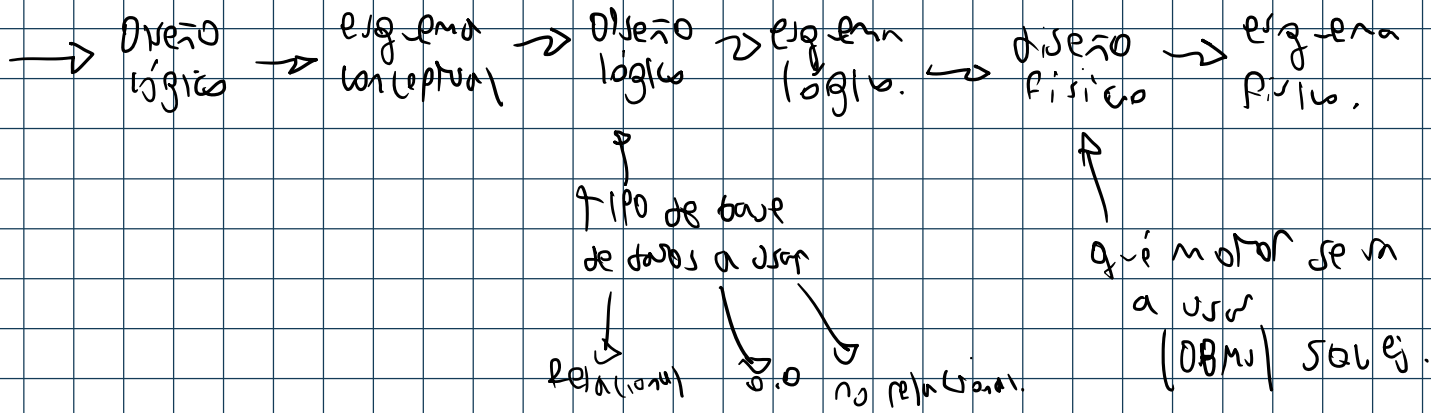 Diseño
lógico
esquema
conceptual
Diseño
lógico
esquema
lógico.
diseño
físico
esquema
físico.
tipo de base
de datos a usar
Relacional
O.O
no relacional.
qué motor se va
a usar
(DBMS) SQL ej.